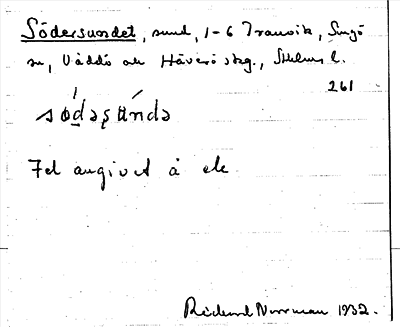 Södersundet, sund, 1-6 Tranvik, Singö
sn, Väddö och Häverö skg., Sthlms l.
261
södəʂúndə
Fel angivet å ek
Rickard Norrman 1932.